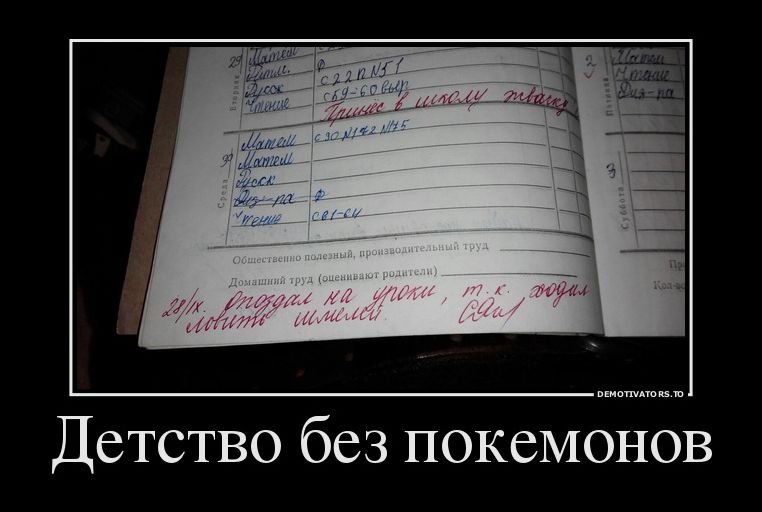 29
Вторник
Матем
Матем.
Русск
Чтение
Ф
с 22 п N51
с 59-60 выр
Принёс в школу жвачку
30
Среда
Матем
Матем
Русск
Физ-ра
Чтение
с 30 N172 N175
Ф
с 61-64
Общественно полезный, производительный труд
Домашний труд (оценивают родители)
28/IX. Опоздал на уроки, т. к. ходил
ловить шмелей.
2
Пятница
Матем
Чтение
Физ-ра
3
Суббота
Кол-во
DEMOTIVATORS.TO
Детство без покемонов